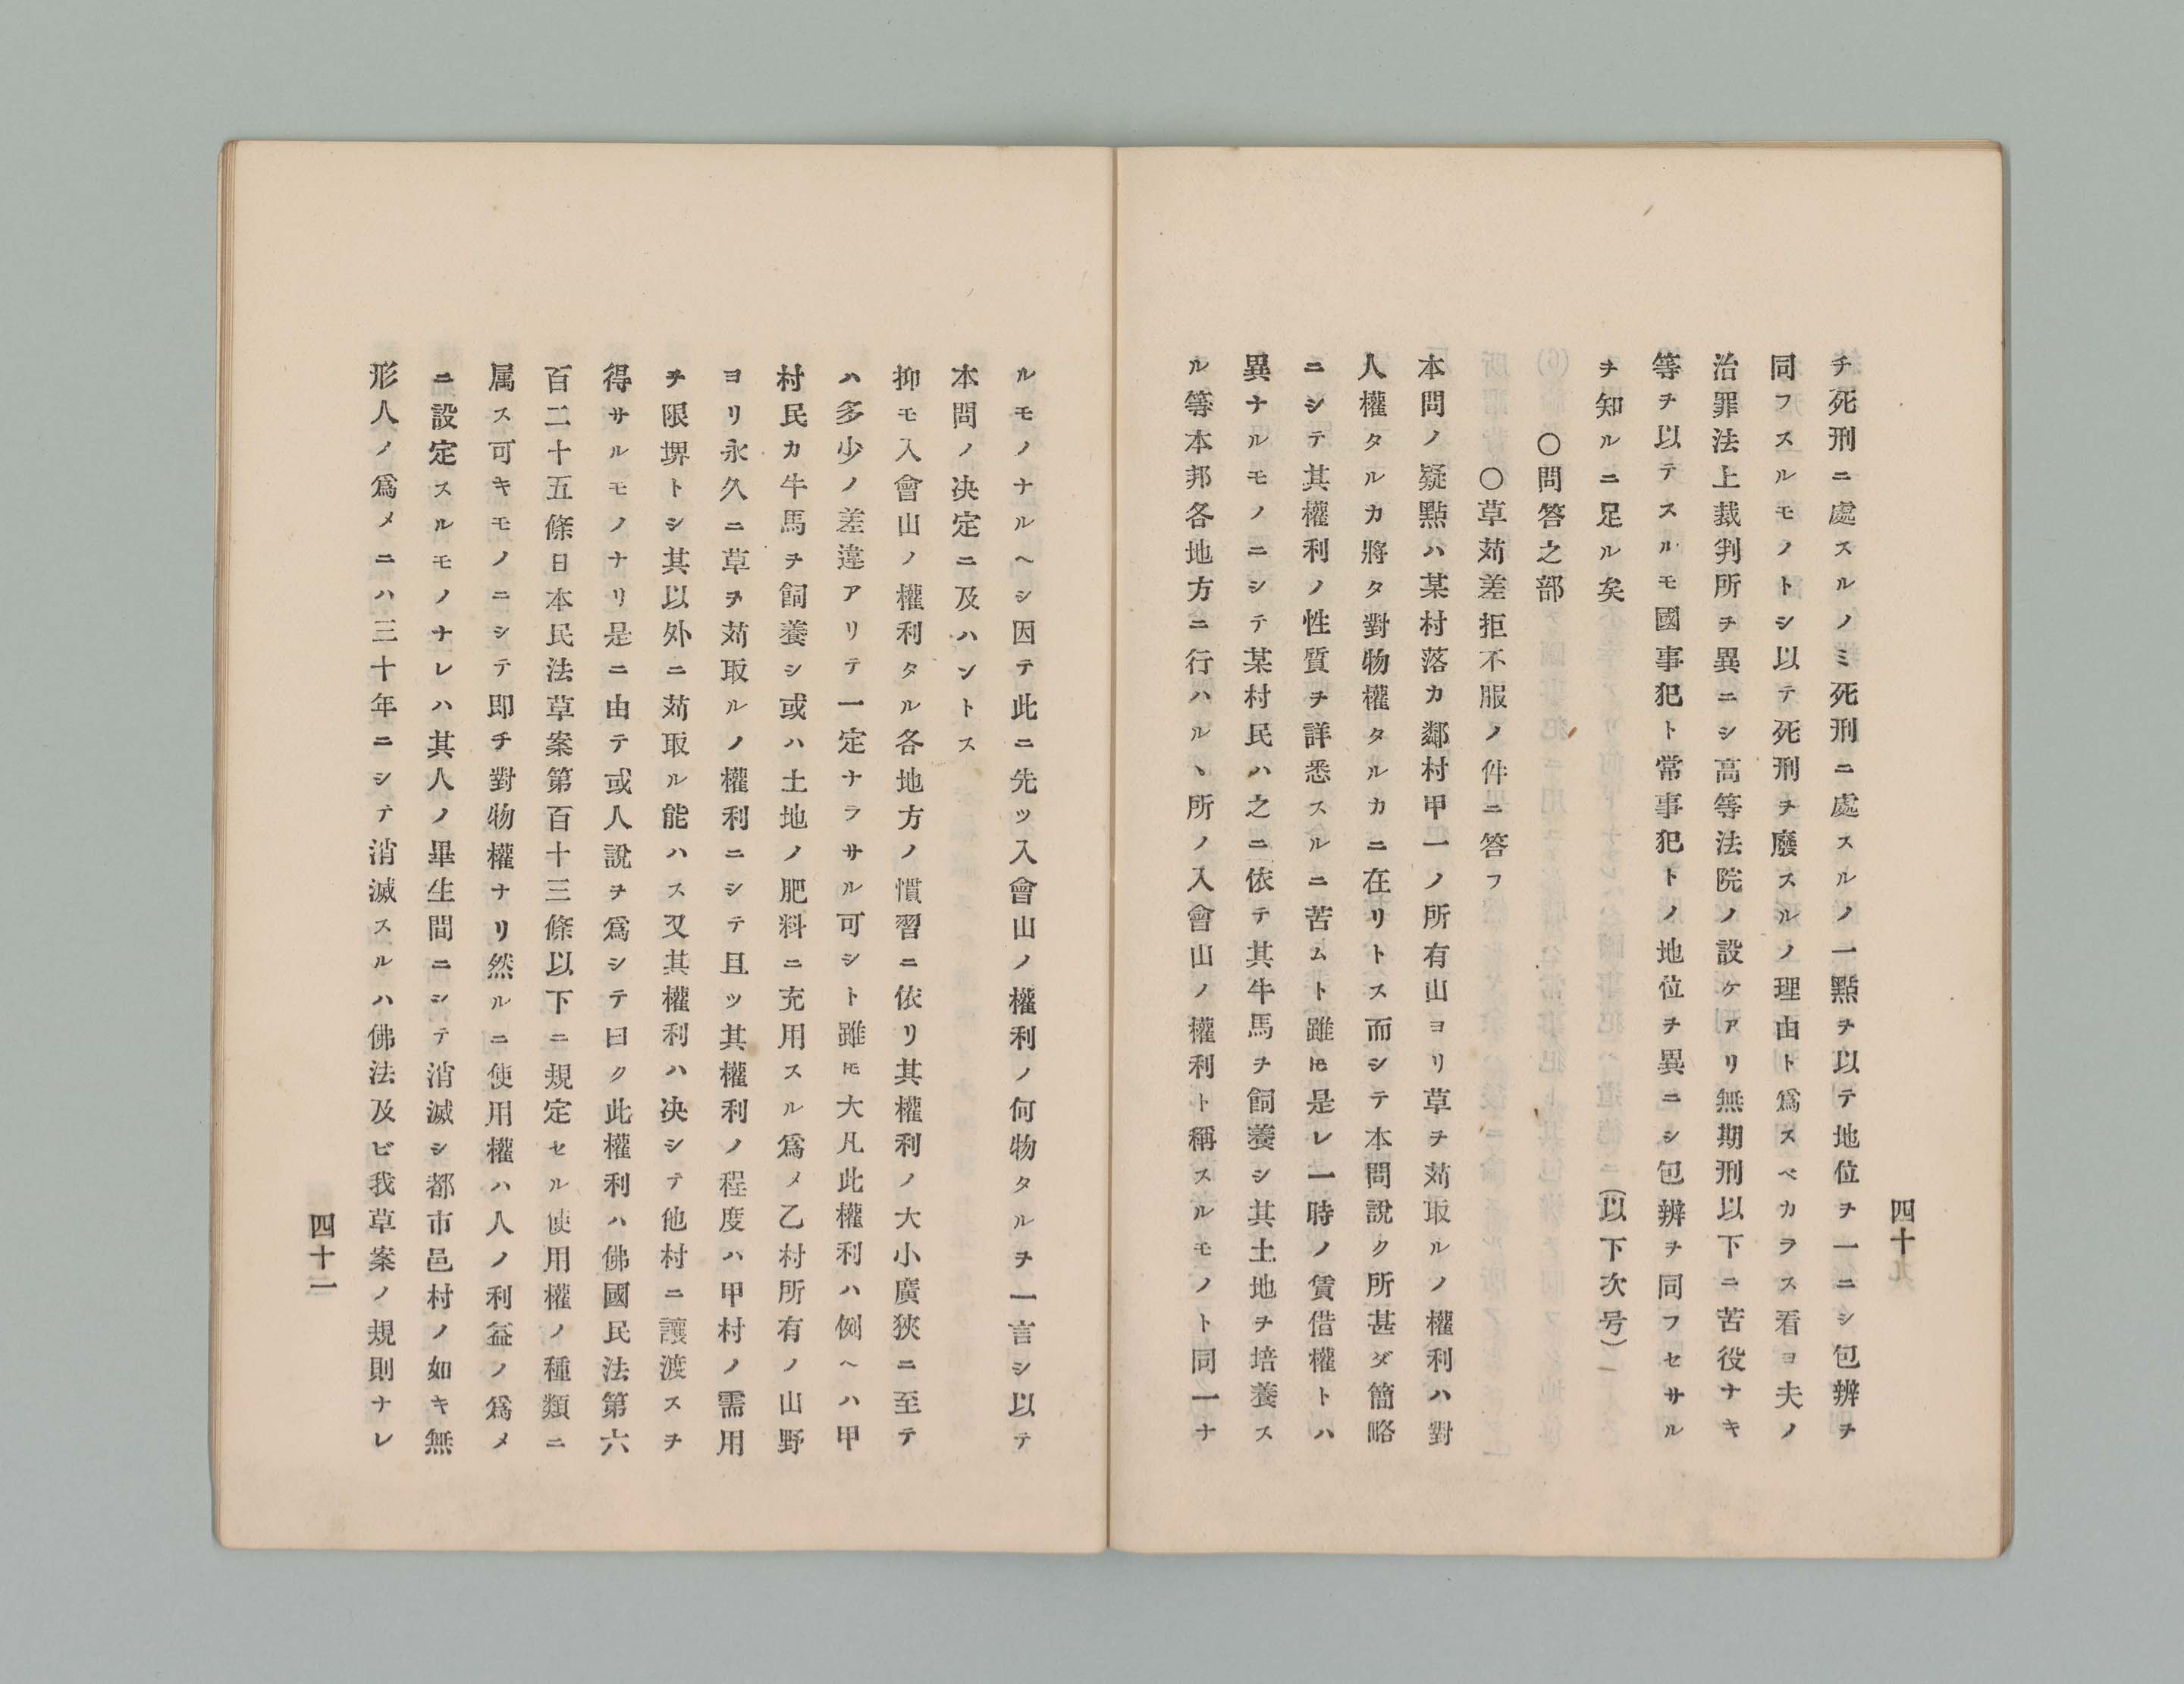 四十
ヲ死刑ニ處スルノミ死刑ニ處スルノ一點ヲ以テ地位ヲ一ニシ包辨ヲ
同フスルモノトシ以テ死刑ヲ廢スルノ理由ト爲スベカラス看ヨ夫ノ
治罪法上裁判所ヲ異ニシ高等法院ノ設ケアリ無期刑以下ニ苦役ナキ
等ヲ以テスルモ國事犯ト常事犯トノ地位ヲ異ニシ包辨ヲ同フセサル
ヲ知ルニ足ル矣（以下次号）
〇問答之部
〇草苅差拒不服ノ件ニ答フ
本問ノ疑點ハ某村落カ鄰村甲一ノ所有山ヨリ草ヲ苅取ルノ權利ハ對
人權タルカ將タ對物權タルカニ在リトス而シテ本問說ク所甚ダ簡略
ニシテ其權利ノ性質ヲ詳悉スルニ苦ムト雖ㇳモ是レ一時ノ賃借權トハ
異ナルモノニシテ某村民ハ之ニ依テ其牛馬ヲ飼養シ其土地ヲ培養ス
ル等本邦各地方ニ行ハルヽ所ノ入會山ノ權利ト稱スルモノト同一ナ
ルモノナルヘシ因テ此ニ先ツ入會山ノ權利ノ何物タルヲ一言シ以テ
本問ノ决定ニ及ハントス
抑モ入會山ノ權利タル各地方ノ慣習ニ依リ其權利ノ大小廣狹ニ至テ
ハ多少ノ差違アリテ一定ナラサル可シト雖ㇳモ大凡此權利ハ例ヘハ甲
村民カ牛馬ヲ飼養シ或ハ土地ノ肥料ニ充用スル爲メ乙村所有ノ山野
ヨリ永久ニ草ヲ苅取ルノ權利ニシテ且ツ其權利ノ程度ハ甲村ノ需用
ヲ限堺トシ其以外ニ苅取ル能ハス又其權利ハ决シテ他村ニ讓渡スヲ
得サルモノナリ是ニ由テ或人說ヲ爲シテ曰ク此權利ハ佛國民法第六
百二十五條日本民法草案第百十三條以下ニ規定セル使用權ノ種類ニ
属ス可キモノニシテ即チ對物權ナリ然ルニ使用權ハ人ノ利益ノ爲メ
ニ設定スルモノナレハ其人ノ畢生間ニシテ消滅シ都市邑村ノ如キ無
形人ノ爲メニハ三十年ニシテ消滅スルハ佛法及ビ我草案ノ規則ナレ
四十一